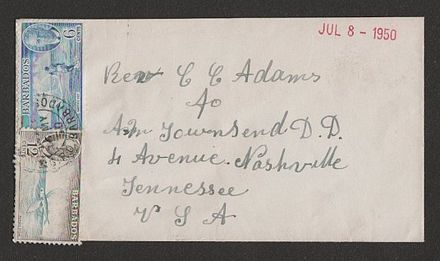 JUL 8 - 1950
Rev C C Adams
%
A.M Townsend D.D.
4 Avenue. Nashville
Tennessee
U S A
6
BARBADOS
12
BARBADOS